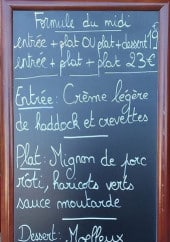 Formule du midi
entrée + plat OU plat + dessert 19€
entrée + plat + plat 23€
Entrée: Crème légère
de haddock et crevettes
Plat: Mignon de porc
rôti, haricots verts
sauce moutarde
Dessert: Moelleux